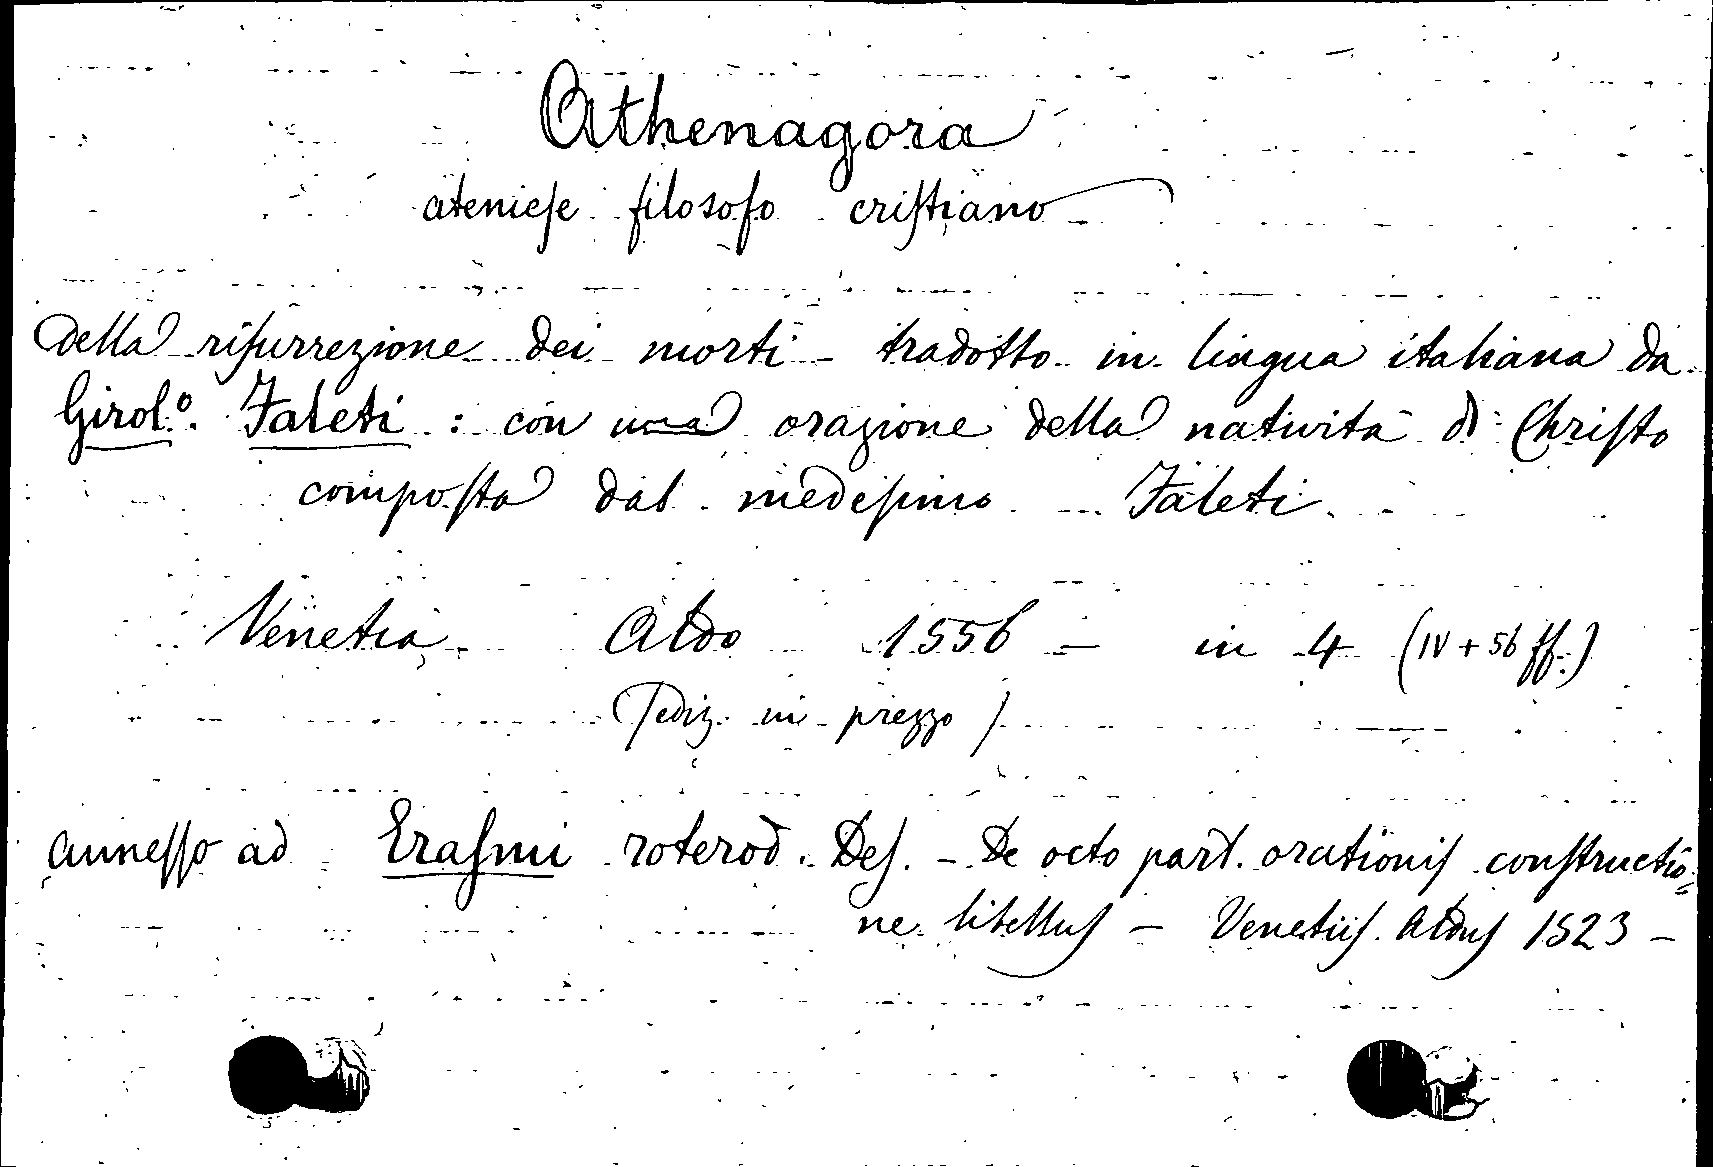 Athenagora
ateniese filosofo cristiano
Della risurrezione dei morti - tradotto in lingua italiana da
Girol.º Faleti : con una orazione della natività di Christo
composta dal medesimo Faleti.
Venetia Aldo 1556 - in 4 (IV + 56 ff.)
(ediz. in prezzo)
annesso ad Erasmi roterod. Des. - De octo part. orationis constructio=
ne libellus - Venetiis. Aldus 1523 -